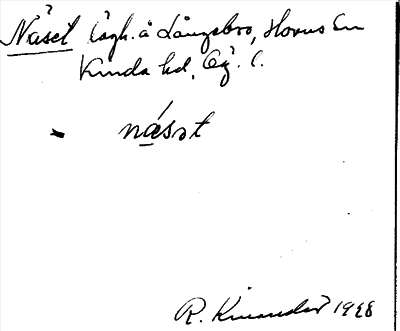 Näset lägh. å Långsbro, Horns sn
Kinda hd, Ög. l.
- näsət
R. Kinander 1928